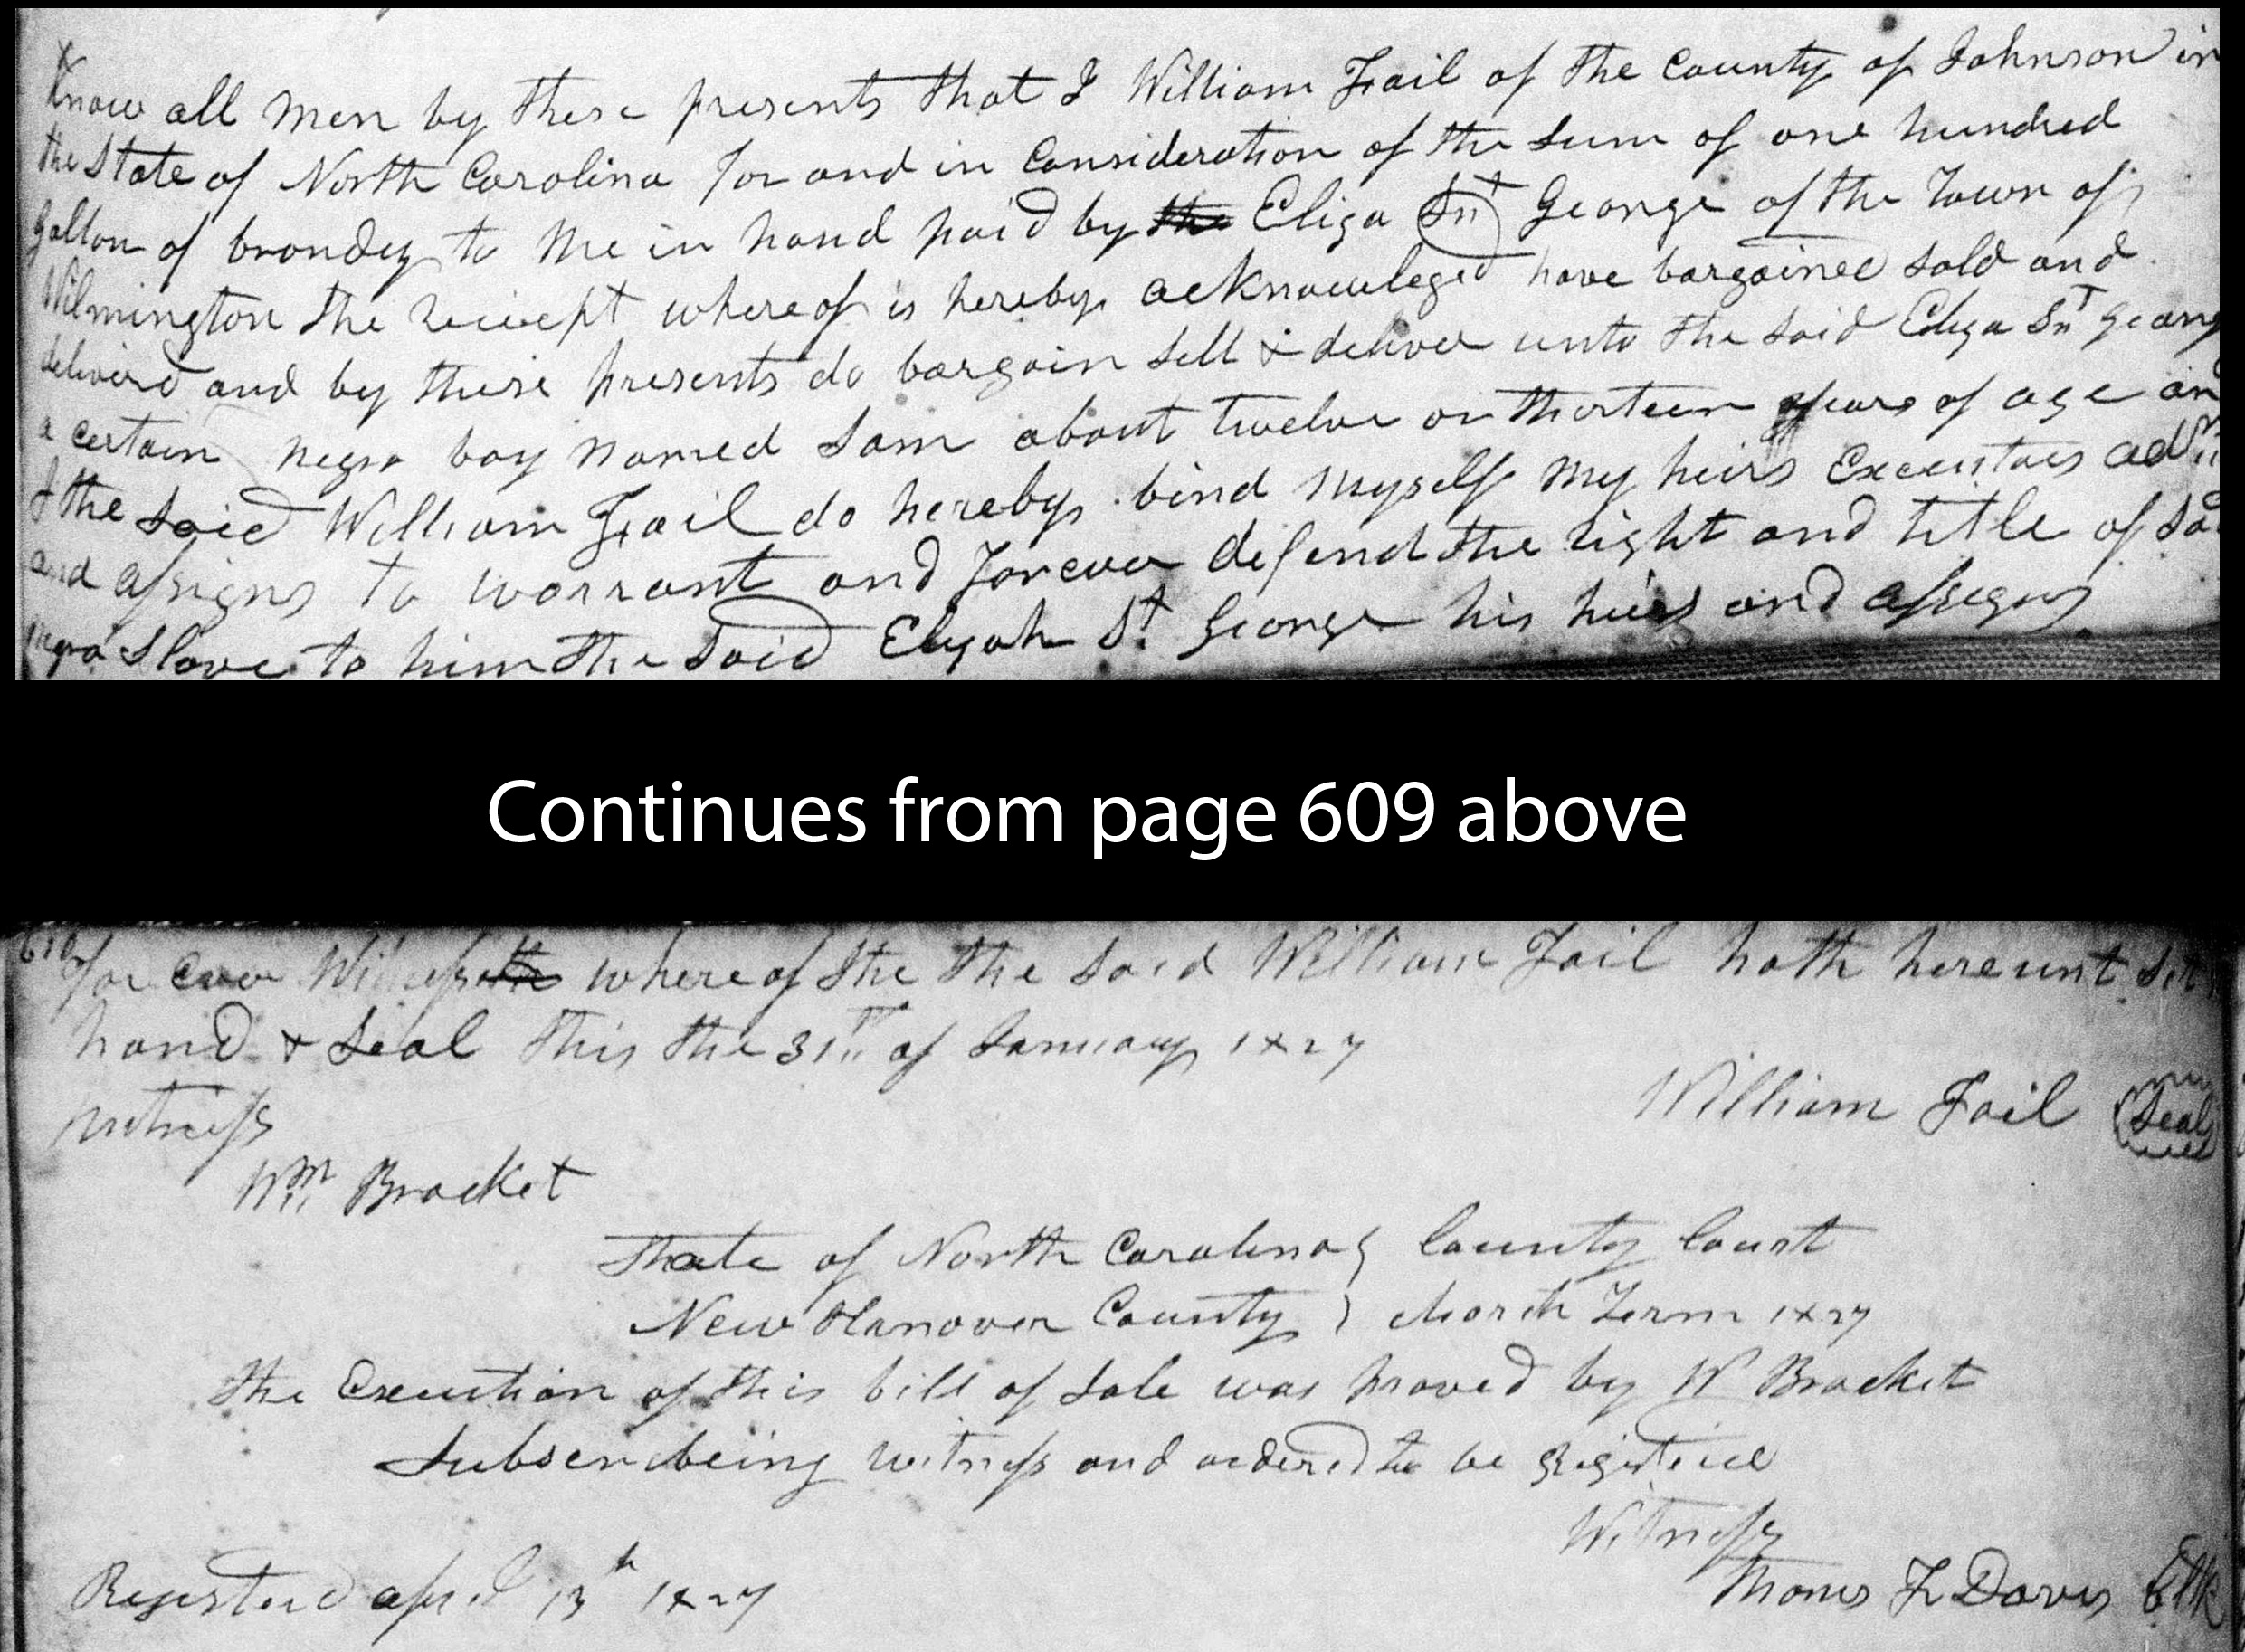 Know all men by these presents that I William Fail of the County of Johnson in
the State of North Carolina for and in Consideration of the sum of one hundred
Gallon of brandey to me in hand paid by the Eliga St George of the Town of
Wilmington the reciept whereof is hereby acknowleged have bargained sold and
delivered and by these presents do bargain sell & deliver unto the said Eliga St George
a certain negro boy named Sam about twelve or thirteen years of age and
I the said William Fail do hereby bind myself my heirs Executors adm
and assigns to warrant and forever defend the right and title of said
negro slave to him the said Elijah St George his heirs and assigns
Continues from page 609 above
610
for ever Witnesseth whereof the the said William Fail hath hereunt set
hand & Seal this the 31st of January 1827
Witness
William Fail Seal
Wm Bracket
State of North Carolina } County Court
New Hanover County } March Term 1827
The Execution of this bill of sale was proved by W Bracket
Subscribeing witness and ordered to be Registered
Witness
Registered april 13th 1827
Thomas F Davis Clk